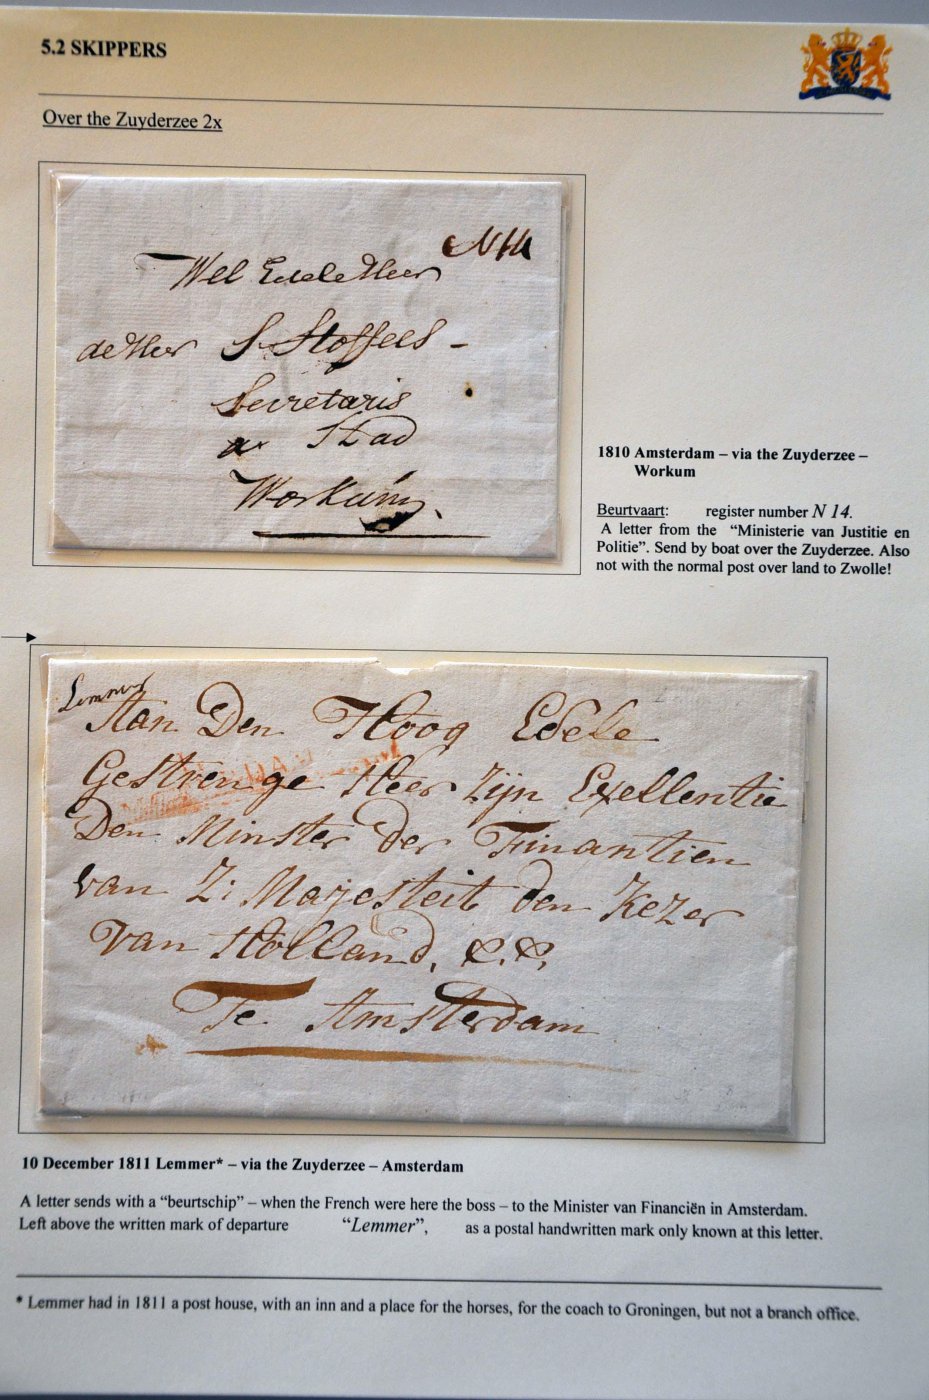 5.2 SKIPPERS
Over the Zuyderzee 2x
N 14
Wel Edele Heer
de Heer S Stoffels -
Secretaris
Stad
Workum
1810 Amsterdam – via the Zuyderzee –
Workum
Beurtvaart: register number N 14.
A letter from the “Ministerie van Justitie en
Politie”. Send by boat over the Zuyderzee. Also
not with the normal post over land to Zwolle!
Lemmer
Aan Den Hoog Edele
Gestrenge Heer Zijn Exellentie
Den Minster der Finantien
van Z: Majesteit den Kezer
van Holland, &.&.
Te Amsterdam
10 December 1811 Lemmer* – via the Zuyderzee – Amsterdam
A letter sends with a “beurtschip” – when the French were here the boss – to the Minister van Financiën in Amsterdam.
Left above the written mark of departure “Lemmer”, as a postal handwritten mark only known at this letter.
* Lemmer had in 1811 a post house, with an inn and a place for the horses, for the coach to Groningen, but not a branch office.